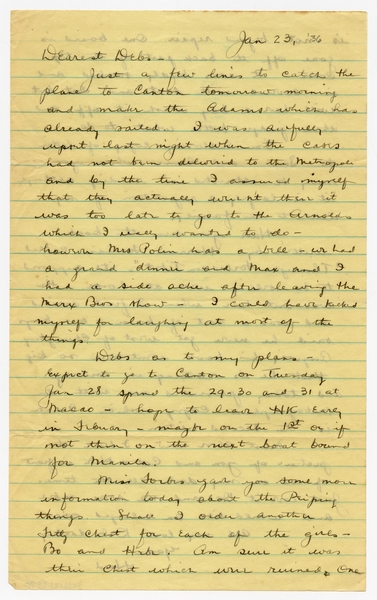 Jan 23, '36
Dearest Debs -
Just a few lines to catch the
plane to Canton tomorrow morning
and make the Adams which has
already sailed. I was awfully
upset last night when the cases
had not been delivered to the Metropole
and by the time I assured myself
that they actually weren't there it
was too late to go to the Arnolds
which I really wanted to do -
however Mrs Polin has a bill - we had
a grand dinner and Max and I
had a side ache after leaving the
Marx Bros show - I could have kicked
myself for laughing at most of the
things.
Debs as to my plans -
Expect to go to Canton on Tuesday
Jan 28 spend the 29-30 and 31 at
Macao - hope to leave HK Early
in February - maybe on the 1st or if
not then on the next boat bound
for Manila.
Miss Forbes gave you some more
information today about the Peiping
things. Shall I order another
Chest for Each of the girls -
Bo and Am sure it was
their Chest which were ruined. One